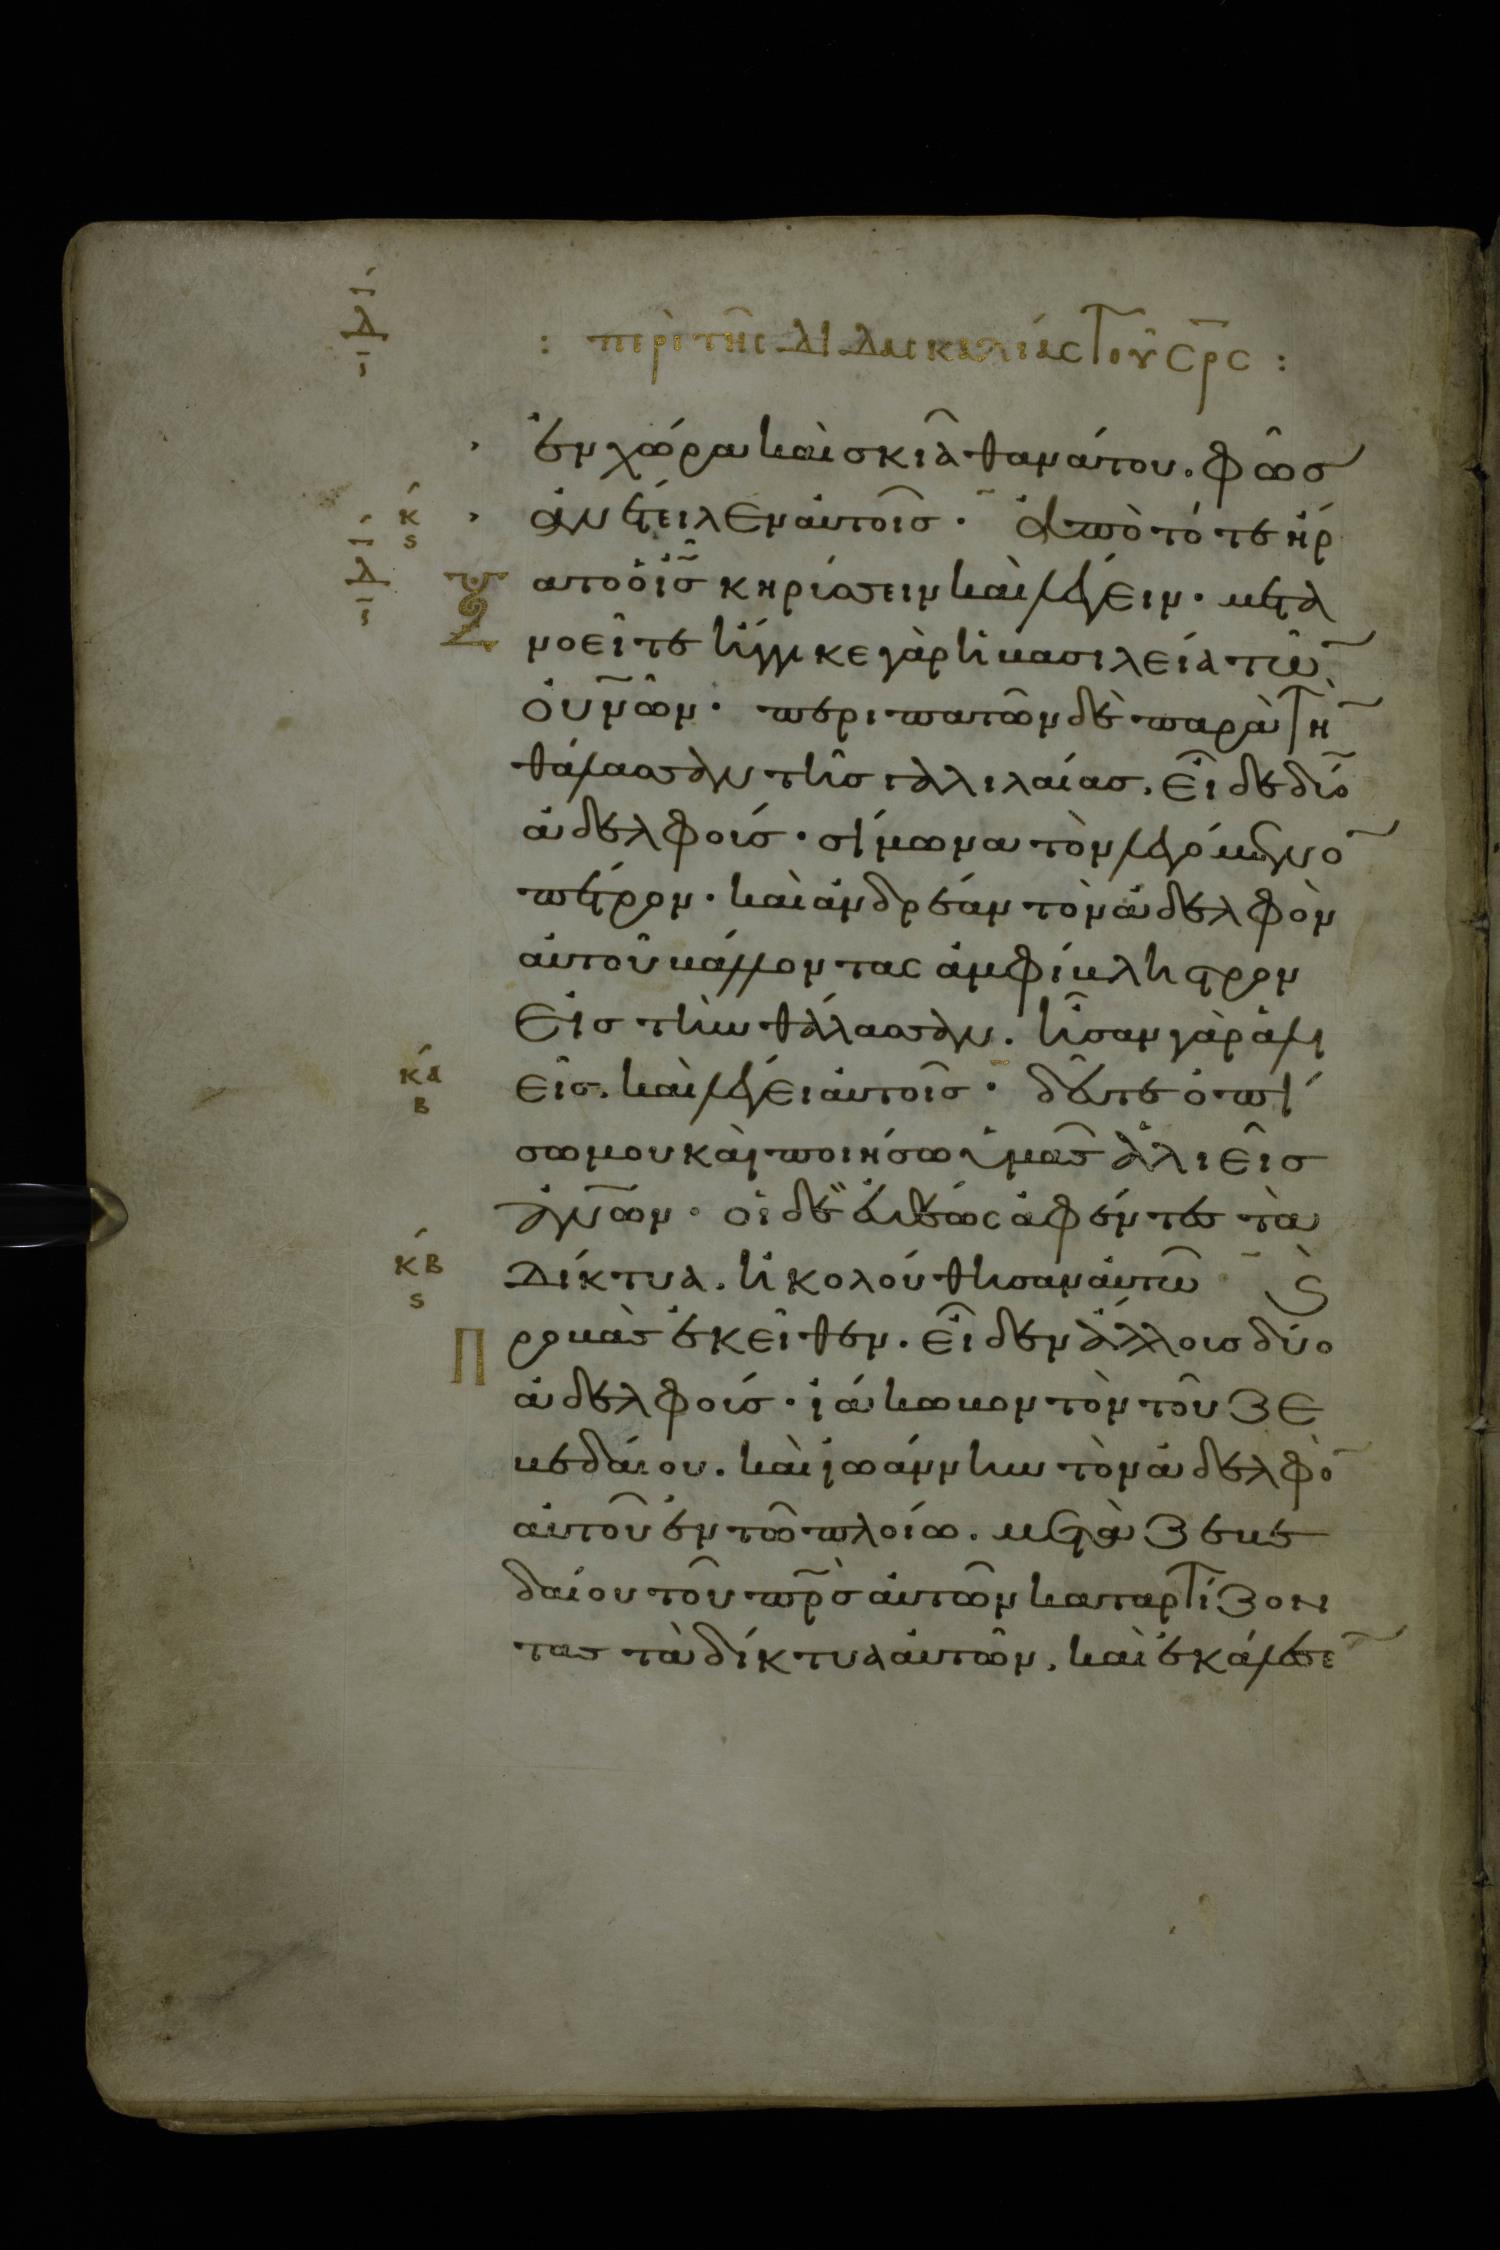 : περὶ τῆς διδασκαλίας τοῦ σ̅ρ̅ς :
ἐν χώρα καὶ σκιᾶ θανάτου. φῶσ
ἀνέτειλεν αὐτοῖσ· Ἀπὸ τότε ἤρ
κ
ϛ
ξατο ὁ ι̅σ̅ κηρύσσειν καὶ λέγειν· μετα
νοεῖτε ἤγγικε γὰρ ἡ βασιλεία τῶ̅
ο̅υ̅ν̅ῶν· περιπατῶν δὲ παρὰ τὴ̅
θάλασσαν τῆσ γαλιλαίασ. εἶδε δύο
ἀδελφούσ· σίμωνα τὸν λεγόμενο̅
πέτρον· καὶ ἀνδρέαν τὸν ἀδελφὸν
αὐτοῦ βάλλοντας ἀμφίβληστρον
εἰσ τὴν θάλασσαν. ἦσαν γὰρ ἁλι
εῖσ. καὶ λέγει αὐτοῖσ· δεῦτε ὀπί
κα
β
σω μου καὶ ποιήσω ὑμᾶσ ἁλιεῖσ
ἀ̅ν̅ω̅ν· οἱ δὲ εὐθέως ἀφέντεσ τὰ
δίκτυα. ἠκολούθησαν αὐτῶ
κβ
ϛ
Προβὰσ ἐκεῖθεν. εἶδεν ἄλλουσ δύο
ἀδελφούσ· ἰάκωβον τὸν τοῦ ζε
βεδαίου. καὶ ἰωάννην τὸν ἀδελφὸ̅
αὐτοῦ ἐν τῶ πλοίω. μετὰ ζεβε
δαίου τοῦ π̅ρ̅σ αὐτῶν καταρτίζον
τασ τὰ δίκτυα αὐτῶν. καὶ ἐκάλεσε̅